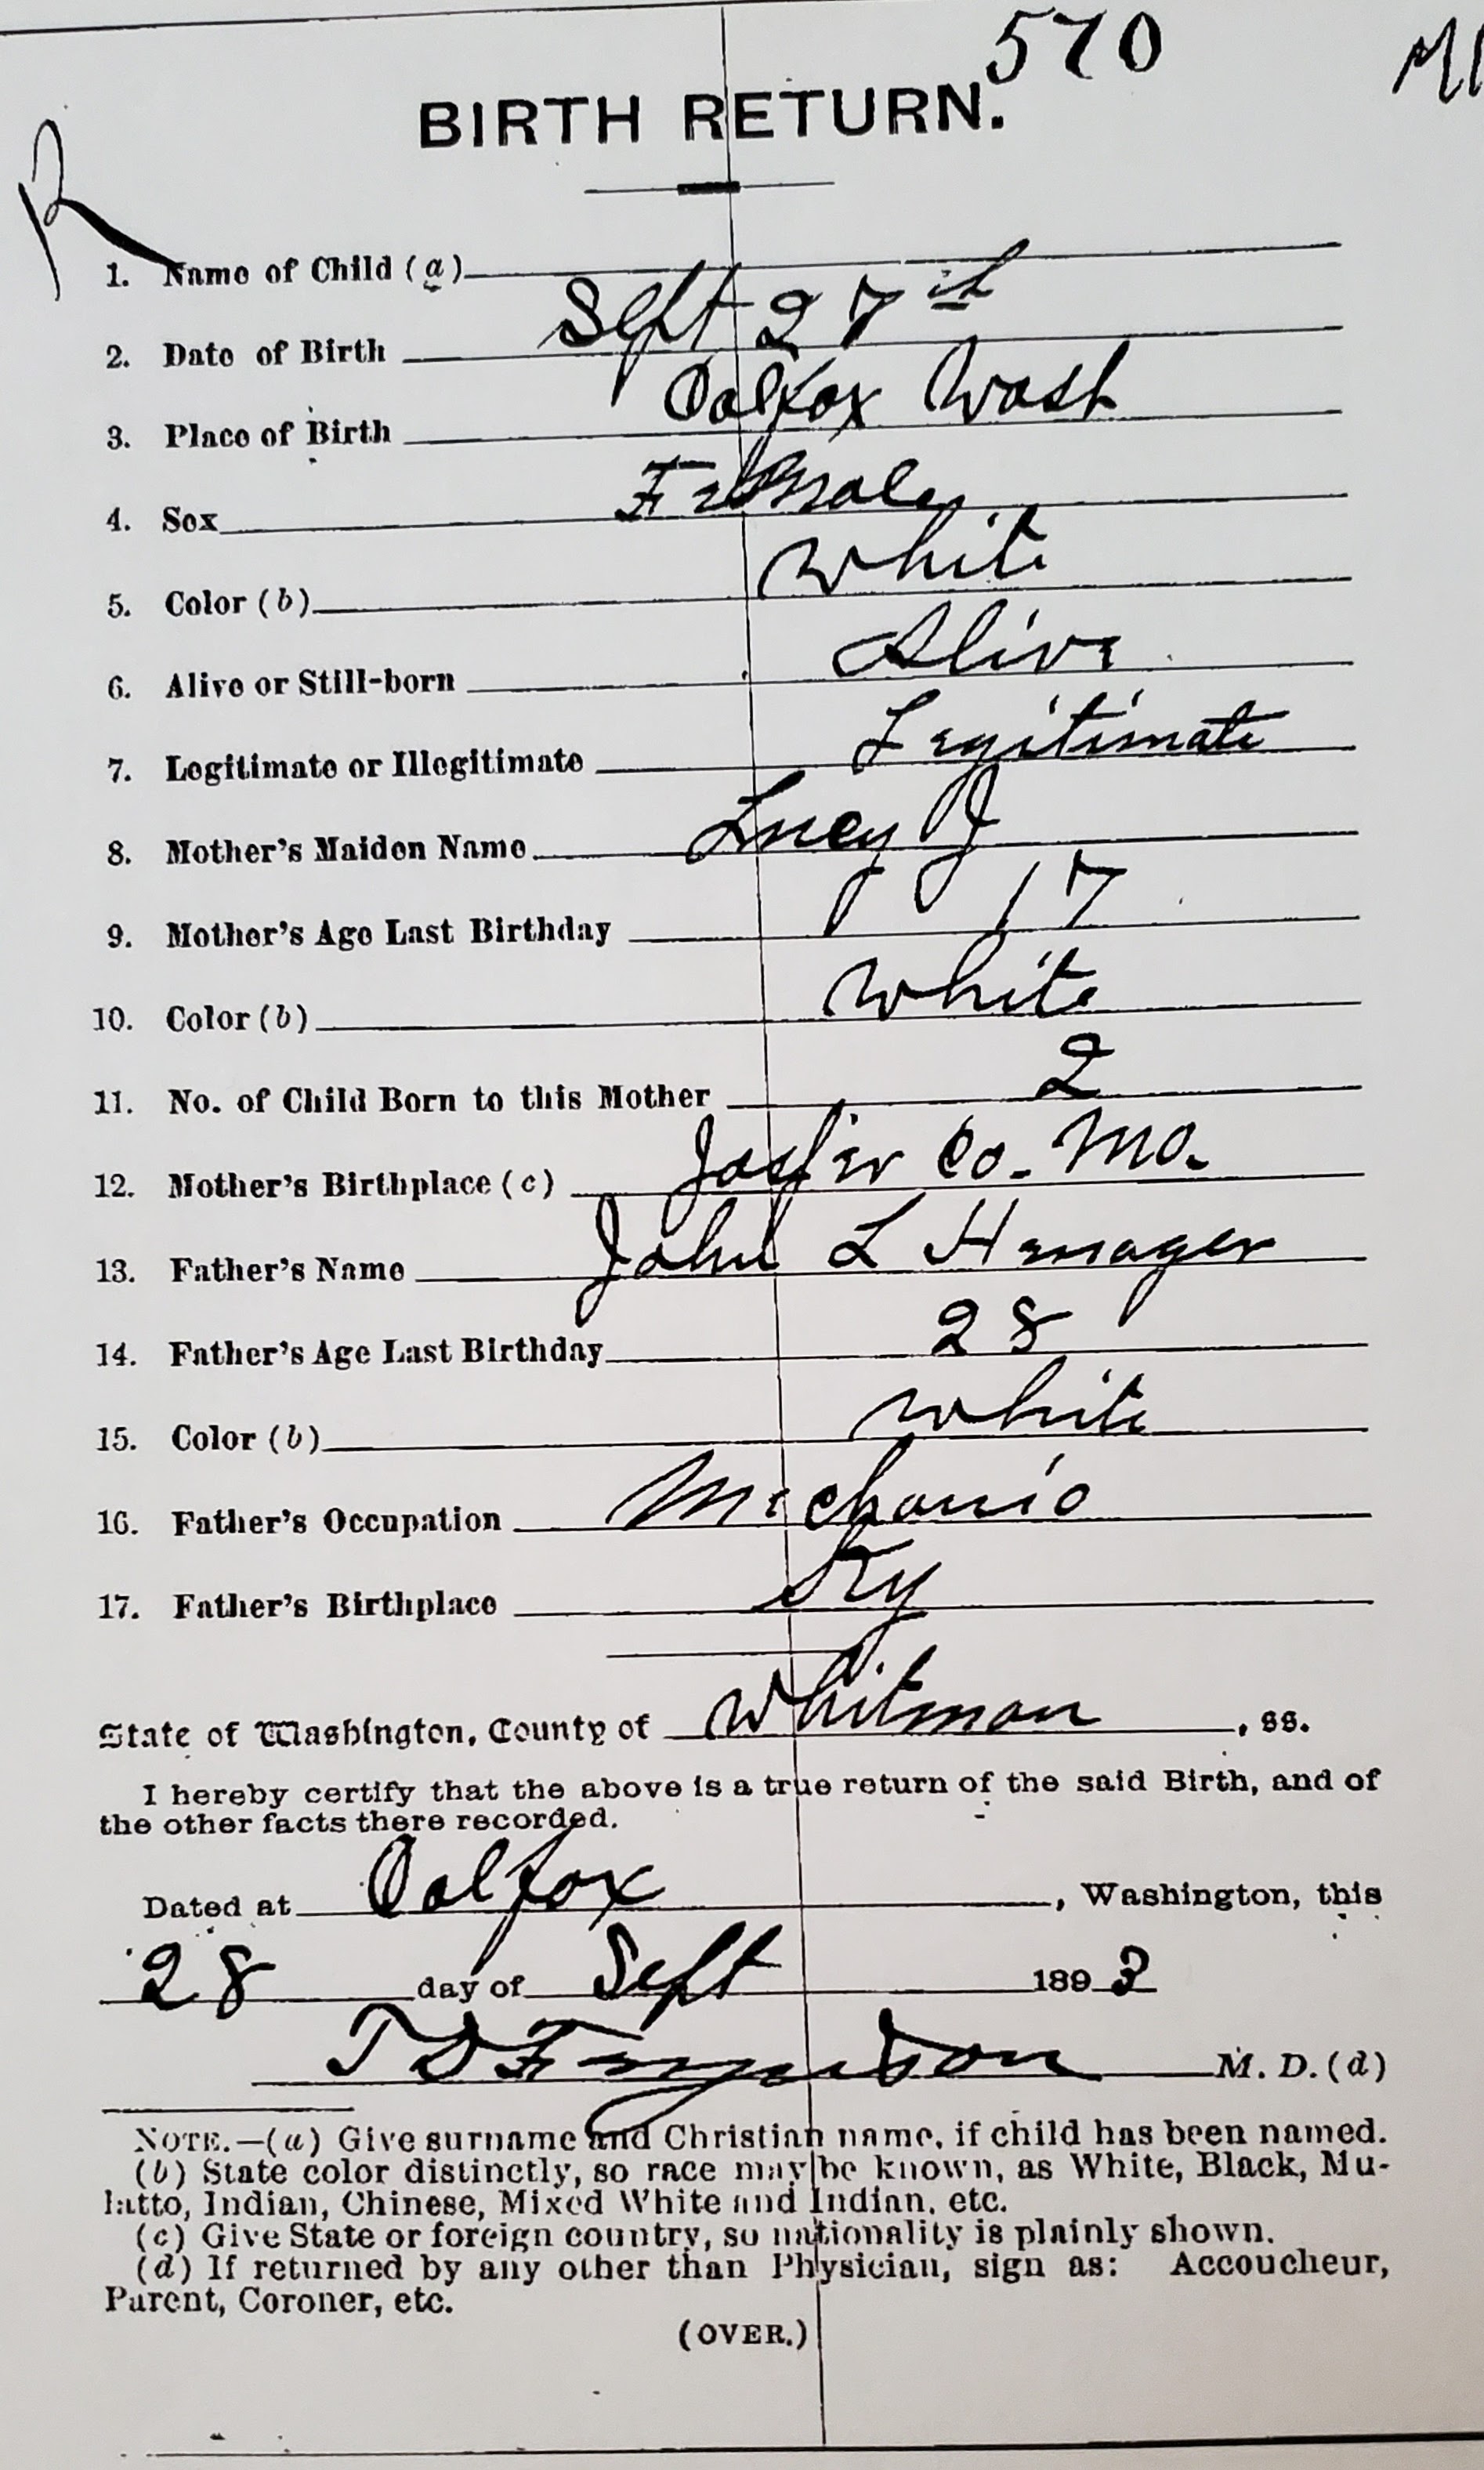 570
BIRTH RETURN.
R
1. Name of Child (a)
2. Date of Birth Sept 27th
3. Place of Birth Colfax Wash
4. Sex Female
5. Color (b) White
6. Alive or Still-born Alive
7. Legitimate or Illegitimate Legitimate
8. Mother's Maiden Name Lucy J
9. Mother's Age Last Birthday 17
10. Color (b) White
11. No. of Child Born to this Mother 2
12. Mother's Birthplace (c) Jasper Co. Mo.
13. Father's Name John L Henager
14. Father's Age Last Birthday 28
15. Color (b) White
16. Father's Occupation Mechanic
17. Father's Birthplace Ky
State of Washington, County of Whitman, ss.
I hereby certify that the above is a true return of the said Birth, and of
the other facts there recorded.
Dated at Colfax, Washington, this
28 day of Sept 1893
T D Ferguson M. D. (d)
NOTE.—(a) Give surname and Christian name, if child has been named.
(b) State color distinctly, so race may be known, as White, Black, Mu-
latto, Indian, Chinese, Mixed White and Indian, etc.
(c) Give State or foreign country, so nationality is plainly shown.
(d) If returned by any other than Physician, sign as: Accoucheur,
Parent, Coroner, etc.
(OVER.)